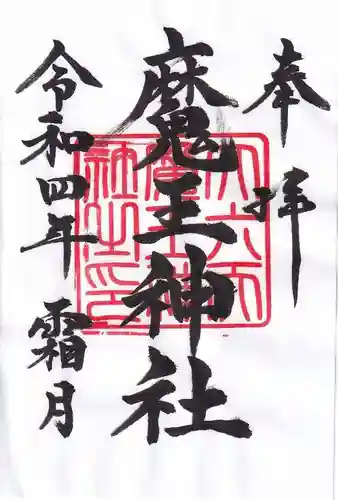 奉拝
魔王神社
令和四年 霜月